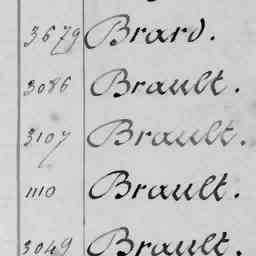 3679 Brard.
3086 Brault.
3107 Brault.
1110 Brault.
3049 Brault.